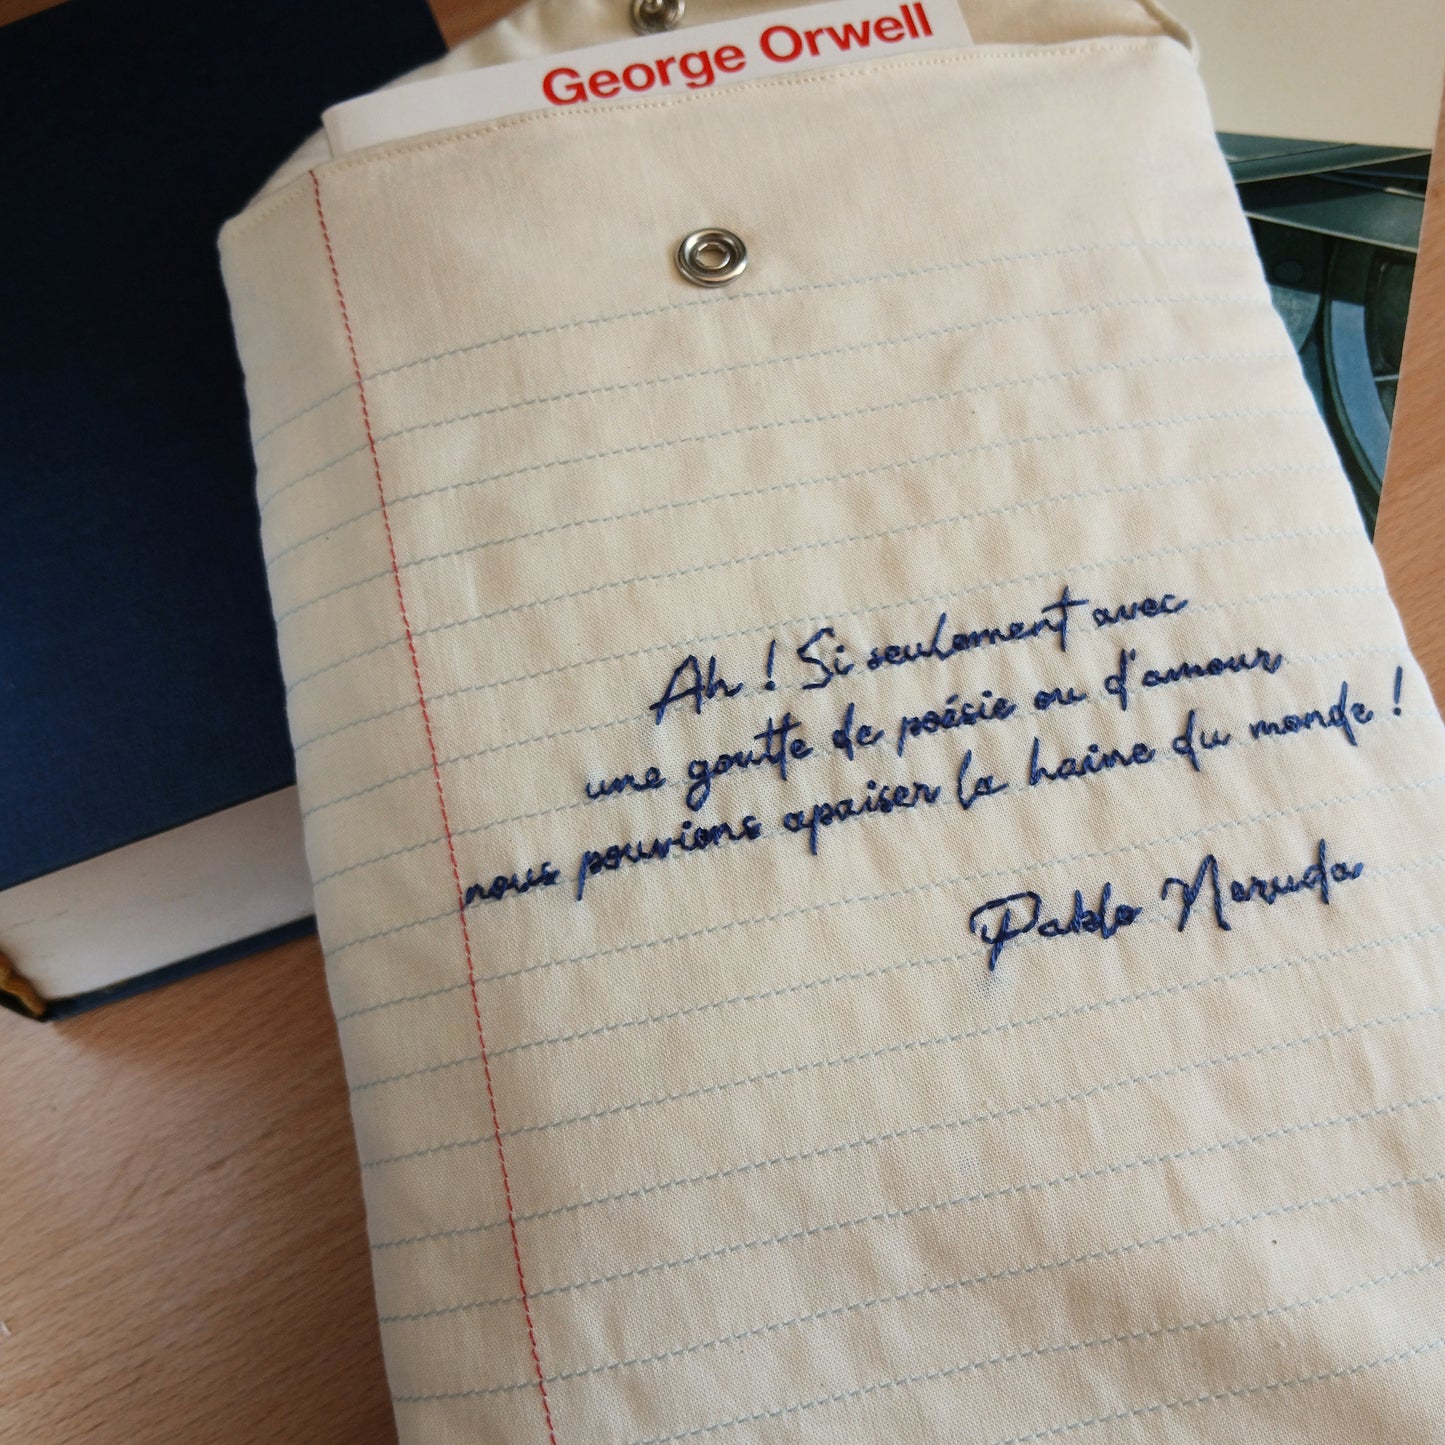 George Orwell
Ah ! Si seulement avec
une goutte de poésie ou d'amour
nous pouvions apaiser la haine du monde !
Pablo Neruda